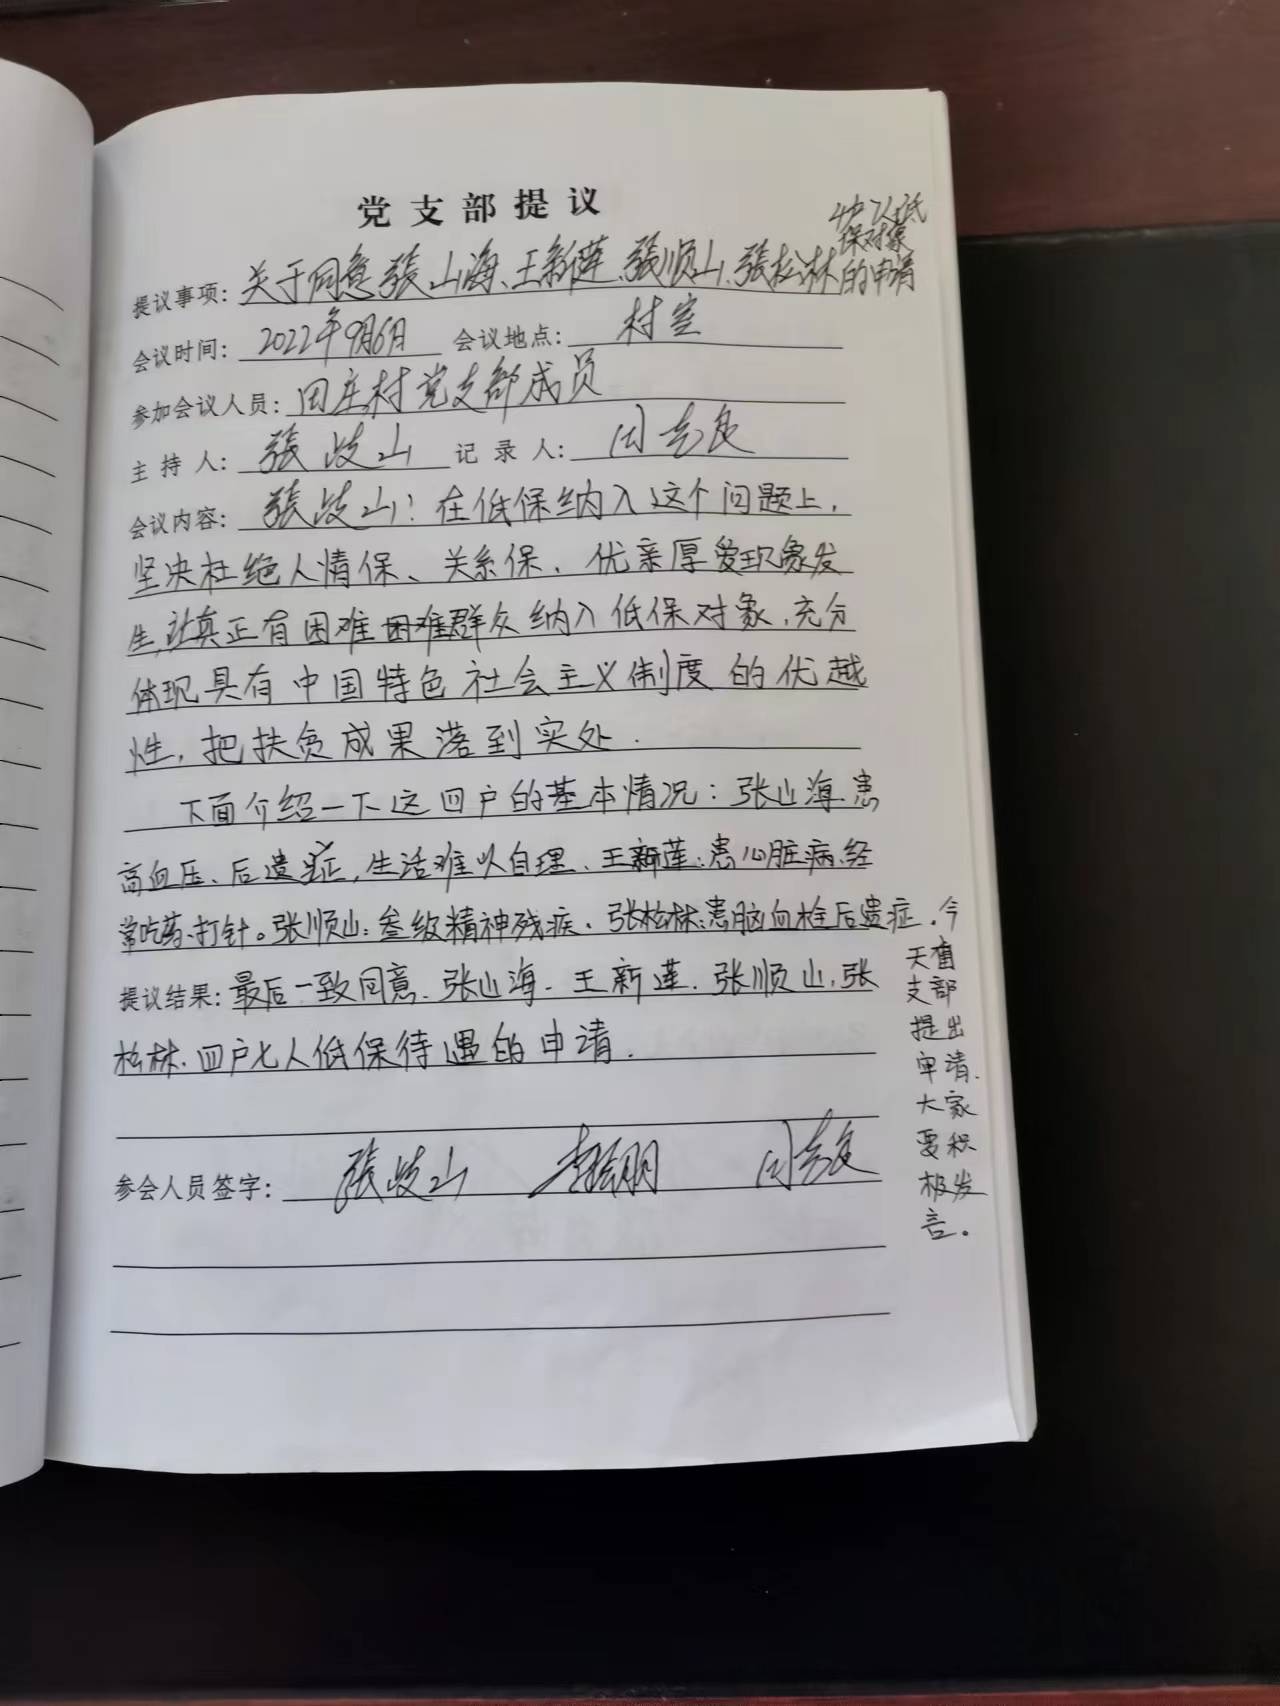 党支部提议
4户7人低
保对象
提议事项：关于同意張山海、王新莲、張顺山、張松林的申请
会议时间：2022年9月6日 会议地点：村室
参加会议人员：田庄村党支部成员
主持人：張岐山 记录人：闫志良
会议内容：張岐山：在低保纳入这个问题上，
坚决杜绝人情保、关系保、优亲厚爱现象发
生，让真正有困难困难群众纳入低保对象，充分
体现具有中国特色社会主义制度的优越
性，把扶贫成果落到实处.
下面介绍一下这四户的基本情况：张山海患
高血压、后遗症，生活难以自理、王新莲：患心脏病、经
常吃药、打针。张顺山：叁级精神残疾. 张松林：患脑血栓后遗症. 今
天
支部
提出
申请.
大家
要积
极发
言。
提议结果：最后一致同意、张山海、王新莲、张顺山、张
松林、四户七人低保待遇的申请.
参会人员签字：張岐山